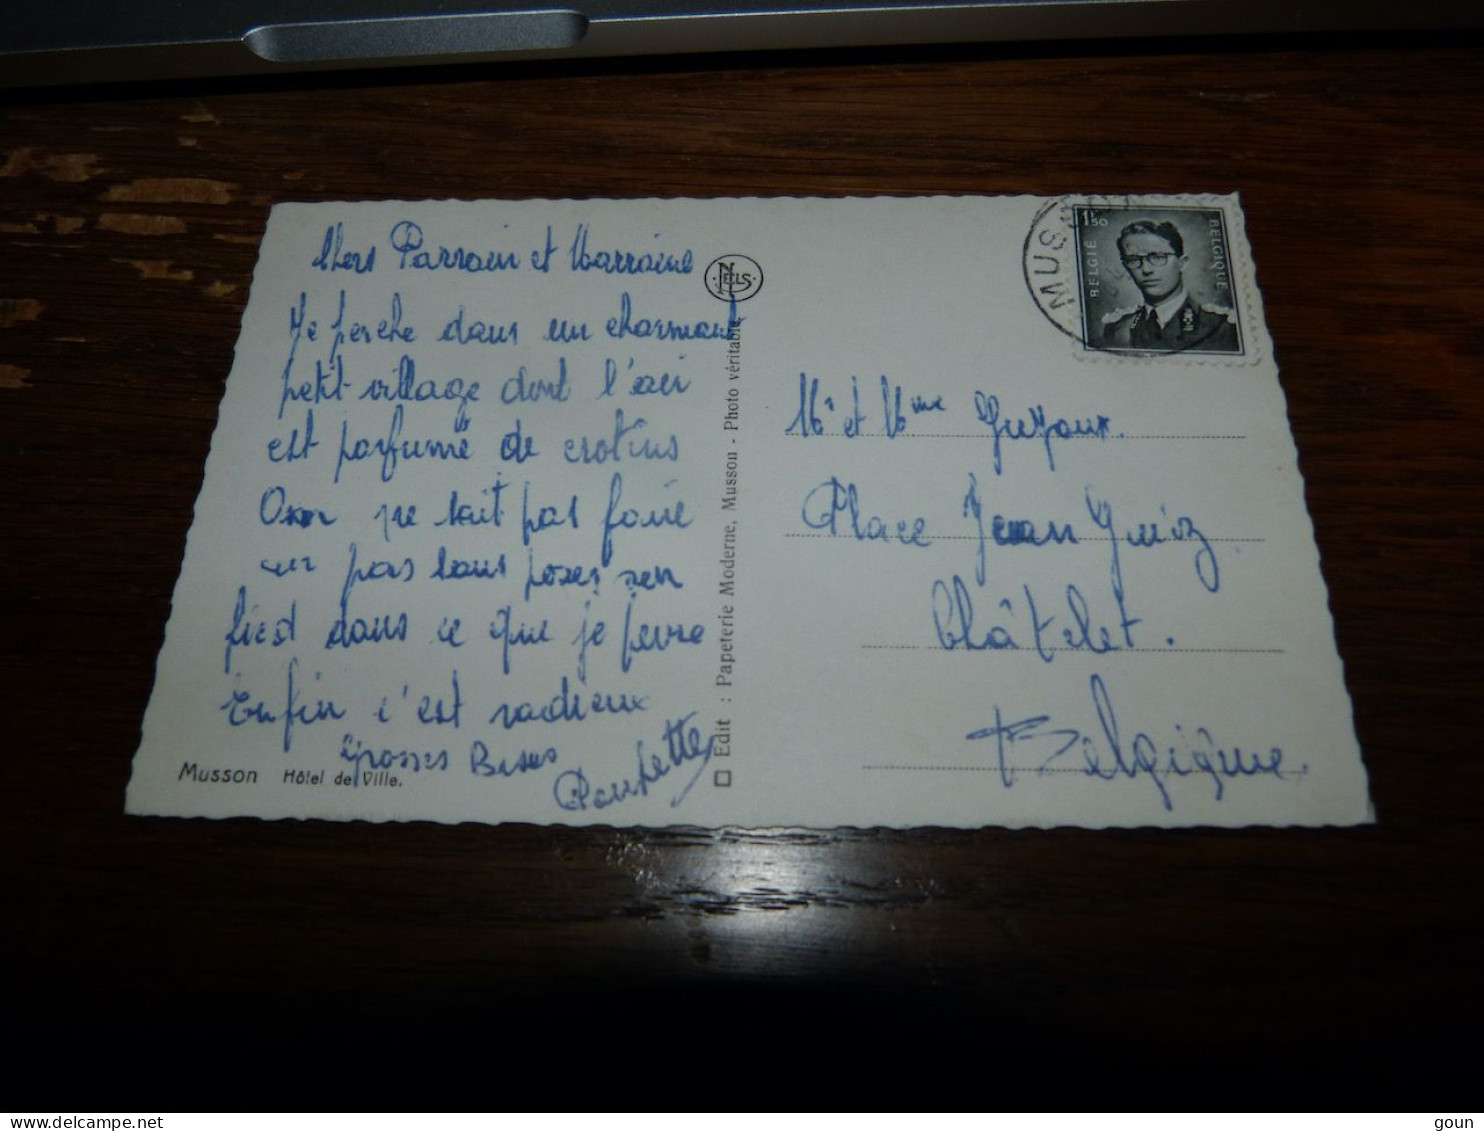 Chers Parrain et Marraine
Je perche dans un charmant
petit village dont l'air
est parfumé de crotins
On ne sait pas faire
un pas sans poser son
pied dans ce que je pense
Enfin c'est radieux
Grosses Bises
Poupette
Musson Hôtel de Ville.
NELS
Edit : Papeterie Moderne, Musson - Photo véritable
MUSSON
1F50
BELGIE BELGIQUE
Mr et Mme
Place Jean Guyot
Châtelet.
Belgique
goun